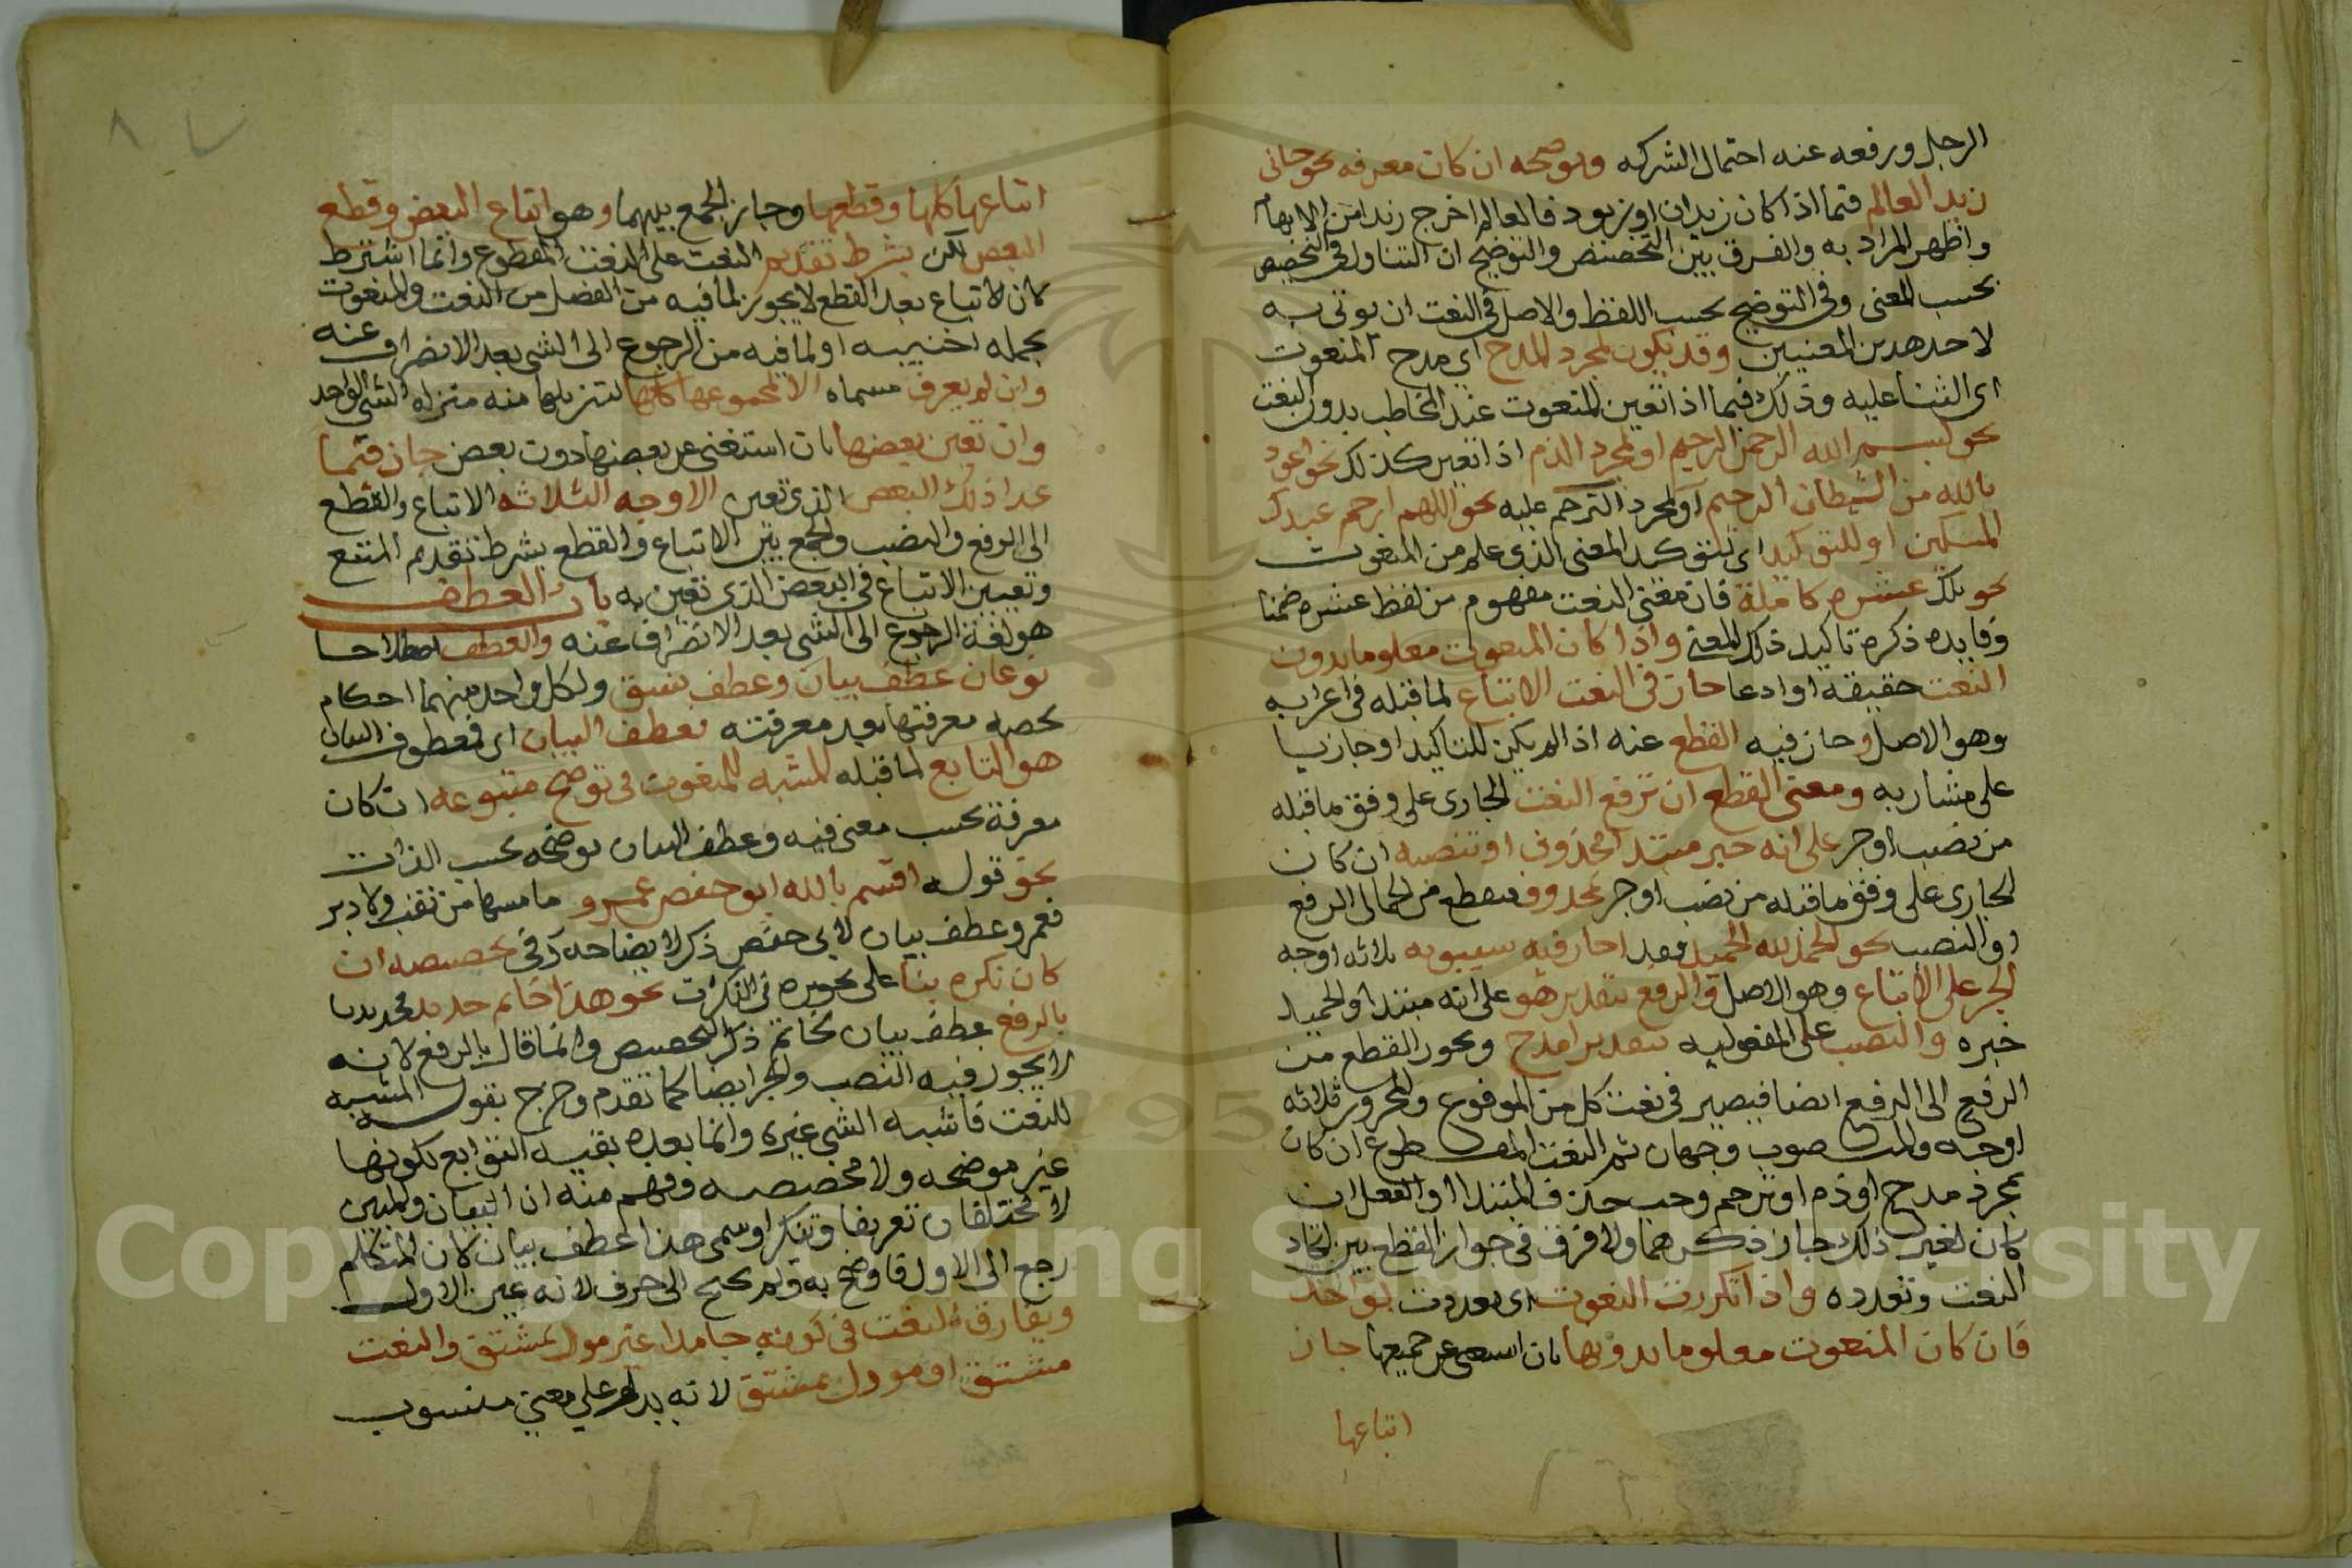 الرجل ورفعه عنه احتمال الشركه ويوضحه ان كان معرفه نحو جاني
زيد العالم فيما اذا كان زيدان او زيود فالعالم اخرج زيدا من الابهام
واظهر المراد به والفرق بين التخصيص والتوضيح ان التناول في التخصيص
بحسب المعنى وفي التوضيح بحسب اللفظ والاصل في النعت ان يوتى به
لاحد هدين المعنيين وقد يكون لمجرد المدح اي مدح المنعوت
اى الثنا عليه وذلك فيما اذا تعين المنعوت عند المخاطب بدون النعت
نحو بسم الله الرحمن الرحيم او لمجرد الذم اذا تعين كذلك نحو اعوذ
بالله من الشيطان الرجيم او لمجرد الترحم عليه نحو اللهم ارحم عبدك
المسكين او للتوكيد اى لتوكيد المعنى الذي علم من المنعوت
نحو تلك عشره كاملة فان معنى النعت مفهوم من لفظ عشره ضمنا
وفايده ذكره تاكيد ذلك المعنى واذا كان المنعوت معلوما بدون
النعت حقيقة او ادعا جاز في النعت الاتباع لما قبله في اعرابه
وهو الاصل وجاز فيه القطع عنه اذا لم يكن للتاكيد او جاريا
على مشار به ومعنى القطع ان ترفع النعت الجارى على وفق ما قبله
من نصب او جر على انه خبر مبتدا محذوف او تنصبه ان كان
الجارى على وفق ما قبله من نصب او جر محذوف فيقطع من الجر الى الرفع
او النصب نحو الحمد لله الحميد فقد اجاز فيه سيبويه ثلاثه اوجه
الجر على الاتباع وهو الاصل والرفع بتقدير هو على انه مبتدا والحميد
خبره والنصب على المفعوليه بتقدير امدح ويجوز القطع من
الرفع الى الرفع ايضا فيصير في نعت كل من المرفوع والمجرور ثلاثه
اوجه والمنصوب وجهان ثم النعت المقطوع ان كان
لمجرد مدح او ذم او ترحم وجب حذف المبتدا او الفعل وان
كان لغير ذلك جاز ذكرهما ولا فرق في جواز القطع بين اتحاد
النعت وتعدده واذا تكررت النعوت اى تعددت لواحد
فان كان المنعوت معلوما بدونها بان استغنى عن جميعها جاز
اتباعها
اتباعها كلها وقطعها وجاز الجمع بينهما وهو اتباع البعض وقطع
البعض لكن بشرط تقديم النعت على النعت المقطوع وانما اشترط
لان الاتباع بعد القطع لا يجوز لما فيه من الفصل من النعت والمنعوت
بجمله اجنبيه او لما فيه من الرجوع الى الشى بعد الانصراف عنه
وان لم يعرف مسماه الا بمجموعها كلها لتنزيلها منه منزله الشى الواحد
وان تعين ببعضها بان استغنى عن بعضها دون بعض جاز فيما
عدا ذلك البعض الذي تعين الاوجه الثلاثه الاتباع والقطع
الى الرفع والنصب والجمع بين الاتباع والقطع بشرط تقديم المتبع
وتعيين الاتباع في البعض الذي تعين به باب العطف
هو لغة الرجوع الى الشى بعد الانصراف عنه والعطف اصطلاحا
نوعان عطف بيان وعطف نسق ولكل واحد منهما احكام
تخصه معرفتها بعد معرفته فعطف البيان اى معطوف البيان
هو التابع لما قبله المشبه للمنعوت في توضيح متبوعه ان كان
معرفة بحسب معنى فيه وعطف البيان يوضحه بحسب الذات
نحو قوله اقسم بالله ابو حفص عمرو ما مسها من نقب ولا دبر
فعمرو عطف بيان لابي حفص ذكر لايضاحه وفي تخصيصه ان
كان نكره بنا على تجويزه في النكرت نحو هذا خاتم حديد
بالرفع عطف بيان لخاتم ذكر لتخصيص وانما قال بالرفع لانه
لا يجوز فيه النصب والجر ايضا كما تقدم وخرج بقوله المشبه
للنعت فاشبه الشى غيره وانما بعده بقيه التوابع لكونها
غير موضحه ولا مخصصه وفهم منه ان البيان والمبين
لا يختلفان تعريفا وتنكيرا وسمى هذا عطف بيان لان المتكلم
رجع الى الاول فاوضح به ولم يحتج الى حرف لانه عين الاول
ويفارق النعت في كونه جامدا غير مول بمشتق والنعت
مشتق او موول بمشتق لانه يدل على معنى منسوب
Copyright © King Saud University